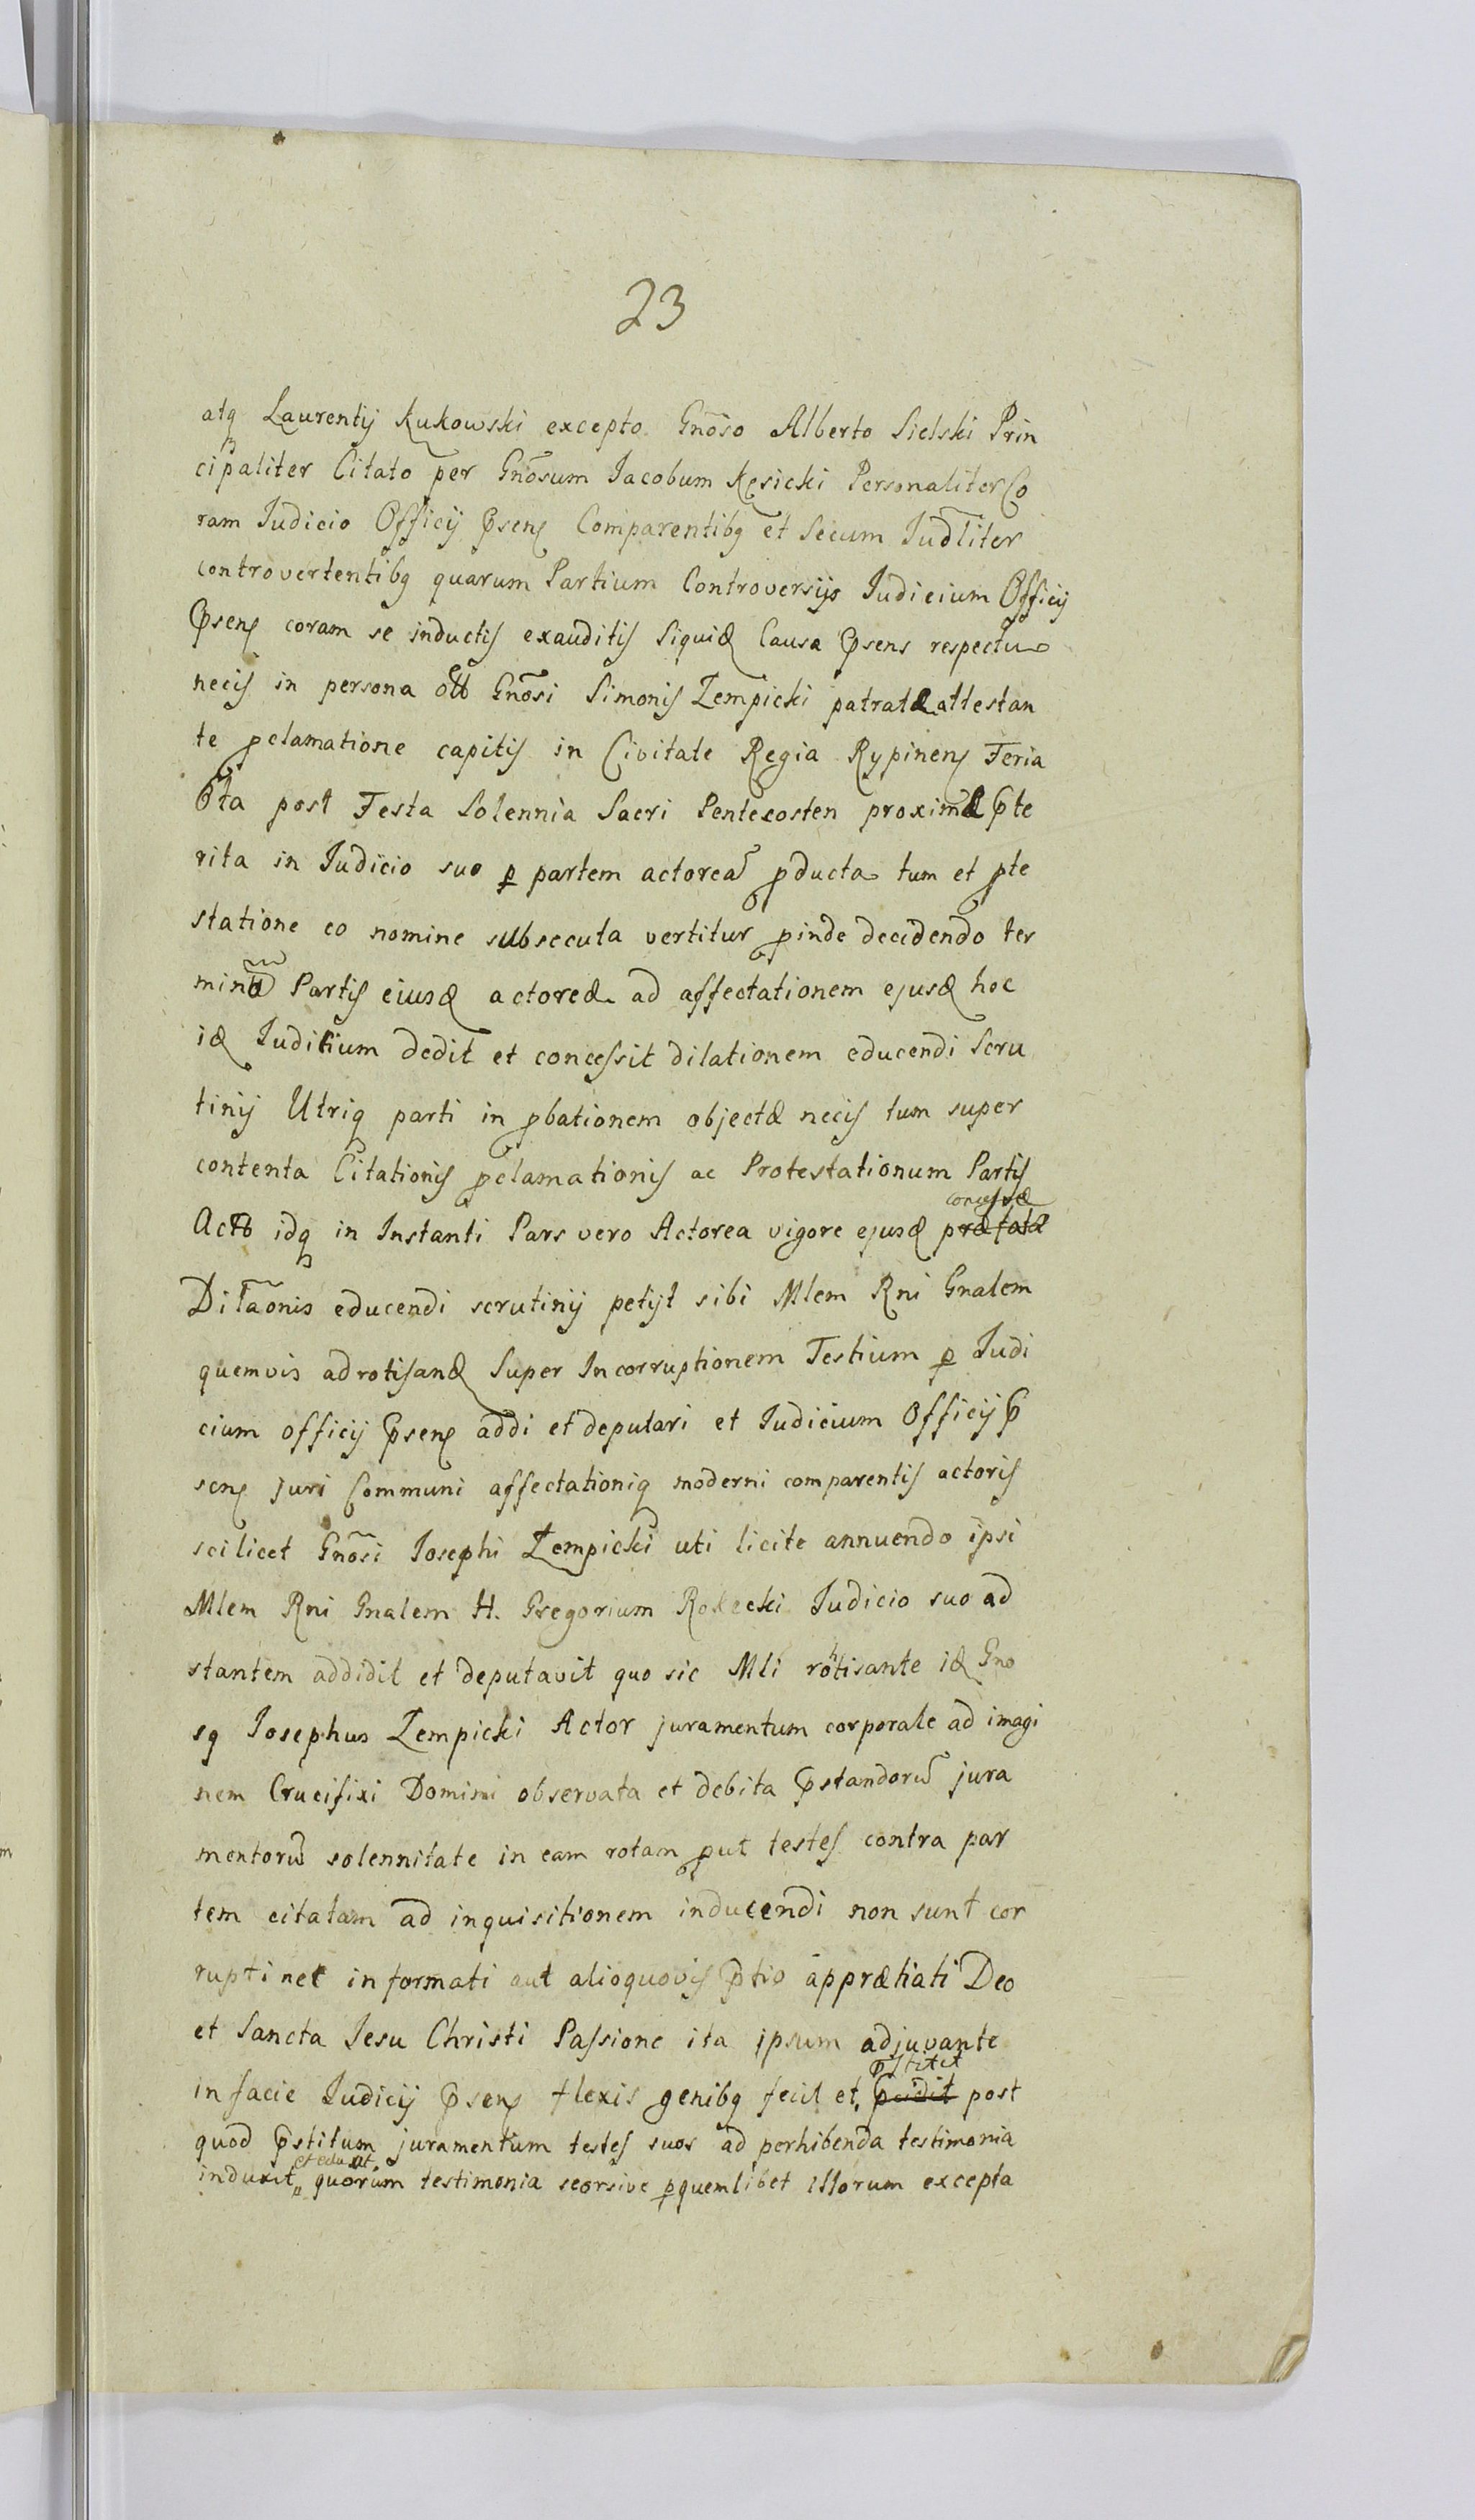 23
atq Laurentij Kukowski excepto Gnõso Alberto Sielski Prin
cipaliter Citato per Gnõsum Jacobum Kęsicki Personaliter Co
ram Judicio Officij Psens Comparentibq et Secum Judliter
controvertentibq quarum Partium Controversijs Judicium Officij
Psens coram se inductis exauditis Siquid Causa Psens respectu
necis in persona olt Gnõsi Simonis Zempicki patratæ attestan
te pclamatione capitis in Civitate Regia Rypinens Feria
6ta post Festa Solennia Sacri Pentecosten proximæ Pte
rita in Judicio suo p partem actorea pducta tum et pte
statione eo nomine subsecuta vertitur pinde decidendo ter
minũ Partis eiusd actoreæ ad affectationem ejusd hoc
id Juditium dedit et concessit dilationem educendi Scru
tinij Utriq parti in pbationem objectæ necis tum super
contenta Citationis pclamationis ac Protestationum Partis
concessæ
Act idq in Instanti Pars vero Actorea vigore ejusd præfatæ
Dilãonis educendi scrutinij petijt sibi Mlem Rni Gnalem
quemvis ad rotisand Super Incorruptionem Testium p Judi
cium officij Psens addi et deputari et Judicium Officij P
sens juri Communi affectationiq moderni comparentis actoris
scilicet Gnõsi Josephi Zempicki uti licite annuendo ipsi
Mlem Rni Gnalem H. Gregorium Rolecki Judicio suo ad
stantem addidit et deputavit quo sic Mli rotisante id Gno
sq Josephus Zempicki Actor juramentum corporale ad imagi
nem Crucifixi Domini observata et debita Pstandorũ jura
mentorũ solennitate in eam rotam put testes contra par
tem citatam ad inquisitionem inducendi non sunt cor
rupti nec informati aut alioquovis Ptio apprætiati Deo
et Sancta Jesu Christi Passione ita ipsum adjuvante
Pstitit
in facie Judicij Psens flexis genibq fecit et post
quod Pstitum juramentum testes suos ad perhibenda testimonia
et eduxit
induxit quorum testimonia seorsive pquemlibet illorum excepta